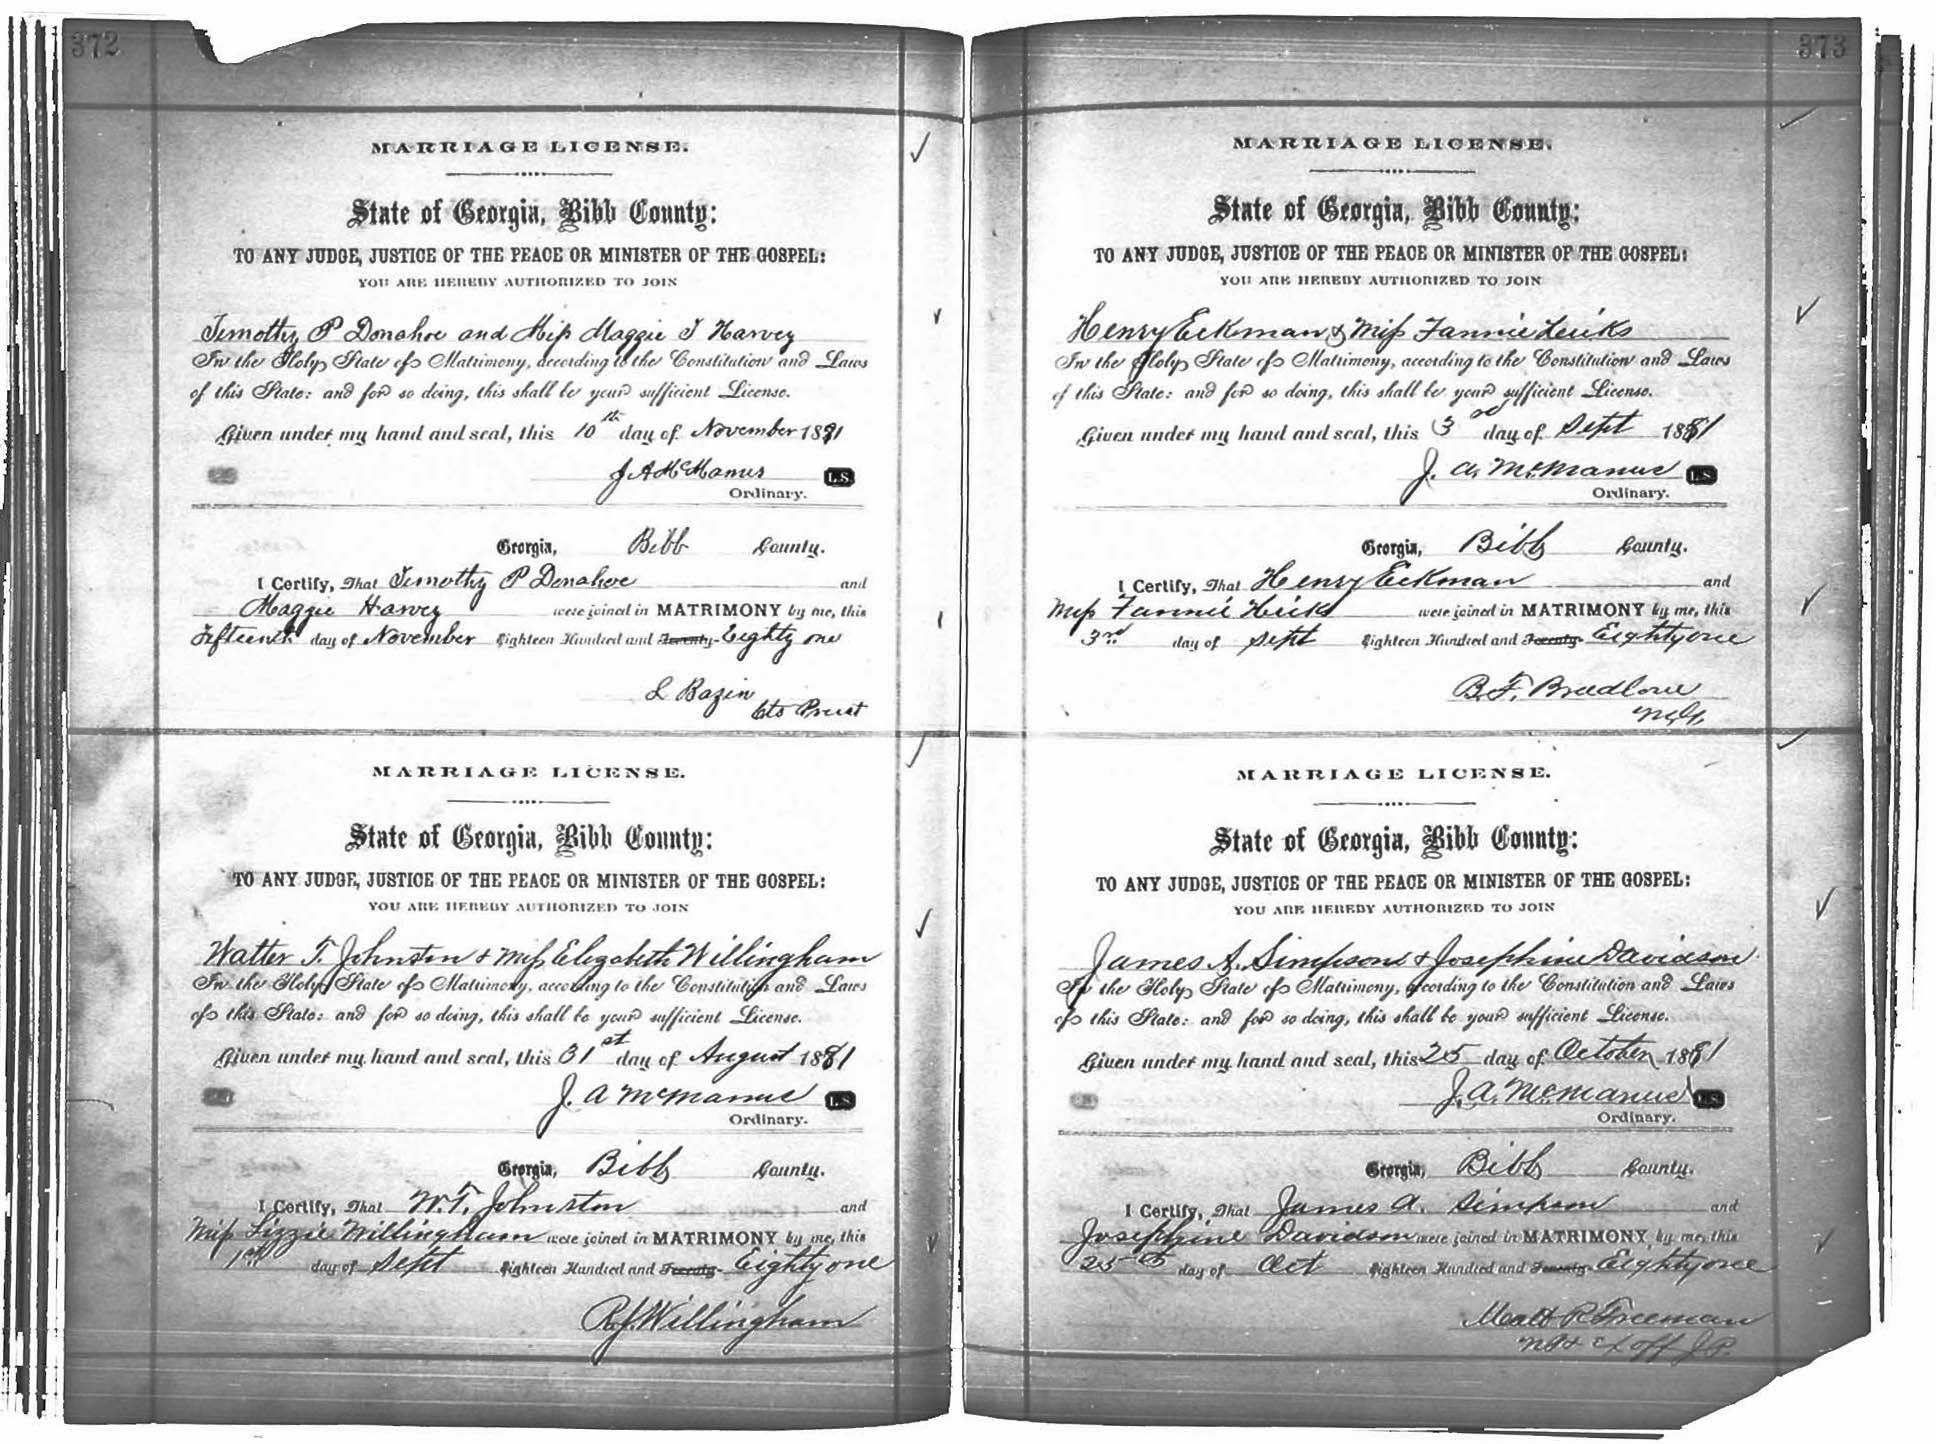 372
MARRIAGE LICENSE.
State of Georgia, Bibb County:
TO ANY JUDGE, JUSTICE OF THE PEACE OR MINISTER OF THE GOSPEL:
YOU ARE HEREBY AUTHORIZED TO JOIN
Timothy P Donahoe and Miss Maggie T Harvey
In the Holy State of Matrimony, according to the Constitution and Laws
of this State: and for so doing, this shall be your sufficient License.
Given under my hand and seal, this 10th day of November 1881
J A McManus L.S.
Ordinary.
Georgia, Bibb County.
I Certify, That Timothy P Donahoe and
Maggie Harvey were joined in MATRIMONY by me, this
Fifteenth day of November Eighteen Hundred and Seventy- Eighty one
L Bazin
Cto Priest
MARRIAGE LICENSE.
State of Georgia, Bibb County:
TO ANY JUDGE, JUSTICE OF THE PEACE OR MINISTER OF THE GOSPEL:
YOU ARE HEREBY AUTHORIZED TO JOIN
Walter T. Johnston & Miss Elizabeth Willingham
In the Holy State of Matrimony, according to the Constitution and Laws
of this State: and for so doing, this shall be your sufficient License.
Given under my hand and seal, this 31st day of August 1881
J. A McManus L.S.
Ordinary.
Georgia, Bibb County.
I Certify, That W. T. Johnston and
Miss Lizzie Willingham were joined in MATRIMONY by me, this
1st day of Sept Eighteen Hundred and Seventy- Eighty one
R. J. Willingham
373
MARRIAGE LICENSE.
State of Georgia, Bibb County:
TO ANY JUDGE, JUSTICE OF THE PEACE OR MINISTER OF THE GOSPEL:
YOU ARE HEREBY AUTHORIZED TO JOIN
Henry Eckman & Miss Fannie
In the Holy State of Matrimony, according to the Constitution and Laws
of this State: and for so doing, this shall be your sufficient License.
Given under my hand and seal, this 3rd day of Sept 1881
J. A. McManus L.S.
Ordinary.
Georgia, Bibb County.
I Certify, That Henry Eckman and
Miss Fannie were joined in MATRIMONY by me, this
3rd day of Sept Eighteen Hundred and Seventy- Eighty one
B. F. Breedlove
MARRIAGE LICENSE.
State of Georgia, Bibb County:
TO ANY JUDGE, JUSTICE OF THE PEACE OR MINISTER OF THE GOSPEL:
YOU ARE HEREBY AUTHORIZED TO JOIN
James A. Simpson & Josephine Davidson
In the Holy State of Matrimony, according to the Constitution and Laws
of this State: and for so doing, this shall be your sufficient License.
Given under my hand and seal, this 25 day of October 1881
J. A. McManus L.S.
Ordinary.
Georgia, Bibb County.
I Certify, That James A. Simpson and
Josephine Davidson were joined in MATRIMONY by me, this
25th day of Oct Eighteen Hundred and Seventy- Eighty one
Matt R Freeman
NP & Ex off J.P.